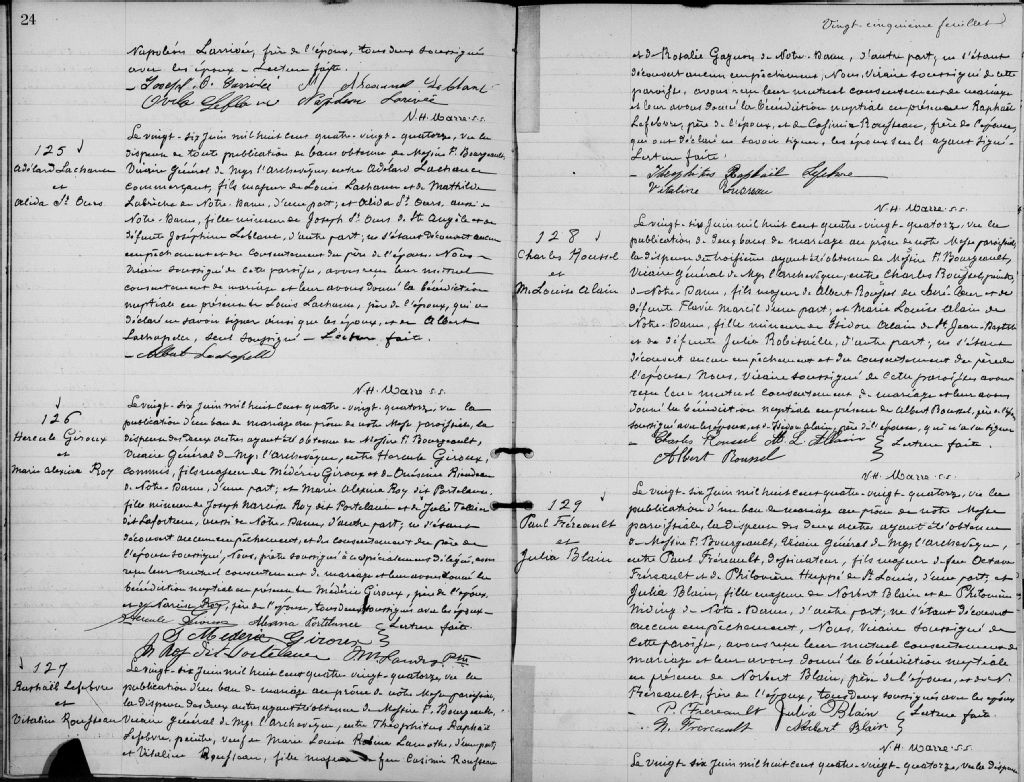 24
Napoléon Larrivée, frère de l'époux, tous deux soussignés
avec les époux - Lecture faite.
N. H. Warre s.s.
125
Adélard Lachance
et
Alida St Ours
Le vingt-six Juin mil huit cent quatre-vingt-quatorze, vu la
dispense de toute publication de bans obtenue de Messire F. Bourgeault,
Vicaire Général de Mgr l'Archevêque, entre Adélard Lachance
commerçant, fils majeur de Louis Lachance et de Mathilde
de Notre-Dame, d'une part; et Alida St Ours, aussi de
Notre-Dame, fille mineure de Joseph St Ours de Ste Angèle et de
défunte Joséphine Leblanc, d'autre part; ne s'étant découvert aucun
empêchement et du consentement du père de l'épouse. Nous
Vicaire soussigné de cette paroisse, avons reçu leur mutuel
consentement de mariage et leur avons donné la bénédiction
nuptiale en présence de Louis Lachance, père de l'époux, qui a
déclaré ne savoir signer ainsi que les époux, et de Albert
Lachapelle, seul soussigné - Lecture faite.
Albert Lachapelle
N. H. Warre s.s.
126
Hercule Giroux
et
Marie Alexina Roy
Le vingt-six Juin mil huit cent quatre-vingt-quatorze, vu la
publication d'un ban de mariage au prône de notre Messe paroissiale, la
dispense des deux autres ayant été obtenue de Messire F. Bourgeault,
Vicaire Général de Mgr l'Archevêque, entre Hercule Giroux,
commis, fils majeur de Médéric Giroux et de Onésime Riendeau
de Notre-Dame, d'une part; et Marie Alexina Roy dit Portelance,
fille mineure de Joseph Narcisse Roy dit Portelance et de Julie Tellier
dit Lafortune, aussi de Notre-Dame, d'autre part; ne s'étant
découvert aucun empêchement, et du consentement du père de
l'épouse soussigné, Nous, prêtre soussigné à ce spécialement délégué, avons
reçu leur mutuel consentement de mariage et leur avons donné la
bénédiction nuptiale en présence de Médéric Giroux, père de l'époux,
et de Narcisse Roy, père de l'épouse, tous deux soussignés avec les époux -
Hercule Giroux Alexina Portelance } Lecture faite
Médéric Giroux
Roy dit Portelance
127
Raphaël Lefebvre
et
Vitaline Rousseau
Le vingt-six Juin mil huit cent quatre-vingt-quatorze, vu la
publication d'un ban de mariage au prône de notre Messe paroissiale,
la dispense des deux autres ayant été obtenue de Messire F. Bourgeault,
Vicaire Général de Mgr l'Archevêque, entre Théophitus Raphaël
Lefebvre, peintre, veuf de Marie Louise Lamothe, d'une part;
et Vitaline Rousseau, fille majeure de feu Casimir Rousseau
Vingt-cinquième feuillet
et de Rosalie Gagnon de Notre-Dame, d'autre part; ne s'étant
découvert aucun empêchement, Nous, Vicaire soussigné de cette
paroisse, avons reçu leur mutuel consentement de mariage
et leur avons donné la bénédiction nuptiale en présence de Raphaël
Lefebvre, père de l'époux, et de Casimir Rousseau, frère de l'épouse,
qui ont déclaré ne savoir signer, les époux seuls ayant signé -
Lecture faite.
Théophitus Raphaël Lefebvre
Vitaline Rousseau
N. H. Warre s.s.
128
Charles Roussel
et
M. Louise Alain
Le vingt-six Juin mil huit cent quatre-vingt-quatorze, vu la
publication de deux bans de mariage au prône de notre Messe paroissiale,
la dispense du troisième ayant été obtenue de Messire F. Bourgeault,
Vicaire Général de Mgr l'Archevêque, entre Charles Roussel, peintre,
de Notre-Dame, fils majeur de Albert Roussel du Sacré Cœur et de
défunte Flavie Marcil d'une part; et Marie Louise Alain de
Notre-Dame, fille mineure de Isidore Alain de St Jean-Baptiste
et de défunte Julia Robitaille, d'autre part; ne s'étant
découvert aucun empêchement et du consentement du père de
l'épouse, Nous, Vicaire soussigné de cette paroisse avons
reçu leur mutuel consentement de mariage et leur avons
donné la bénédiction nuptiale en présence de Albert Roussel, père de l'époux,
soussigné avec les époux, et de Isidore Alain, père de l'épouse, qui n'a su signer
Charles Roussel M. L. Allain } Lecture faite.
Albert Roussel
N. H. Warre s.s.
129
Paul Fréreault
et
Julia Blain
Le vingt-six Juin mil huit cent quatre-vingt-quatorze, vu la
publication d'un ban de mariage au prône de notre Messe
paroissiale, la dispense des deux autres ayant été obtenue
de Messire F. Bourgeault, Vicaire Général de Mgr l'Archevêque,
entre Paul Fréreault, dessinateur, fils majeur de feu Octave
Fréreault et de Philomène Huppé de St Louis, d'une part, et
Julia Blain, fille majeure de Norbert Blain et de Philomène
de Notre-Dame, d'autre part, ne s'étant découvert
aucun empêchement, Nous, Vicaire soussigné de
cette paroisse, avons reçu leur mutuel consentement de
mariage et leur avons donné la bénédiction nuptiale
en présence de Norbert Blain, père de l'épouse, et de N.
Fréreault, frère de l'époux, tous deux soussignés avec les époux
P. Fréreault Julia Blain } Lecture faite.
N. Frereault Norbert Blain
N. H. Warre s.s.
Le vingt-six Juin mil huit cent quatre-vingt-quatorze, vu la dispense